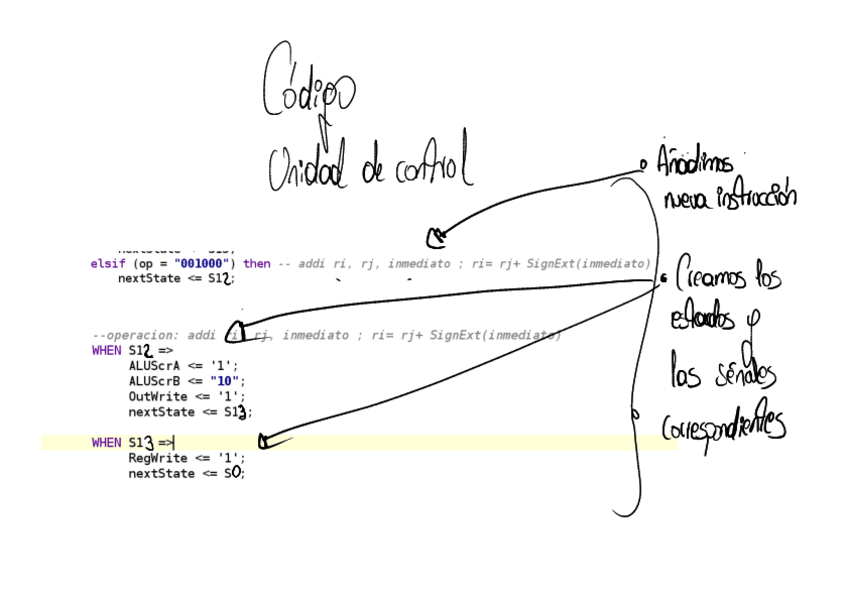 Código
Unidad de control
Añadimos
nueva instrucción
elsif (op = "001000") then -- addi ri, rj, inmediato ; ri= rj+ SignExt(inmediato)
nextState <= S12;
Creamos los
estados y
las señales
correspondientes
--operacion: addi ri, rj, inmediato ; ri= rj+ SignExt(inmediato)
WHEN S12 =>
ALUScrA <= '1';
ALUScrB <= "10";
OutWrite <= '1';
nextState <= S13;
WHEN S13 =>
RegWrite <= '1';
nextState <= S0;